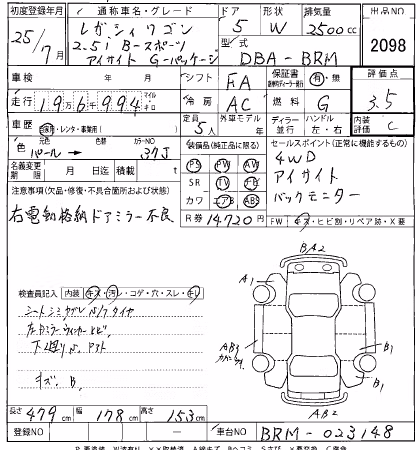 初度登録年月 通称車名・グレード ドア 形状 排気量 出品NO
25/7月 レガシィワゴン 5 W 2500cc 2098
2.5i Bースポーツ
アイサイト Gーパッケージ
型式 DBA-BRM
車検 年 月 シフト FA 保証書 有・無 評価点
走行 19万6千994 マイル キロ 冷房 AC 燃料 G 3.5
車歴 自家用・レンタ・事業用( ) 定員 5人 外車モデル 年 ディーラー 並行 ハンドル 左・右 内装 C
色 元色 パール→ 色替 カラーNO 37J
装備品(純正品に限る)
PS PW AW
SR TV ナビ
カワ エアB ABS
セールスポイント(正常に機能するもの)
4WD
アイサイト
バックモニター
名義変更期限 月 日 迄 積載 t
R券 14720円
注意事項(欠品・修復・不具合箇所および状態)
右電動格納ドアミラー不良
FW キズ・ヒビ割・リペア跡・X要
検査員記入 内装 キズ・汚レ・コゲ・穴・スレ・キレ
キズ、B
BA2
A1
B1
B1
AB2
長さ 479cm 幅 178cm 高さ 153cm
登録NO 車台NO BRM-023148